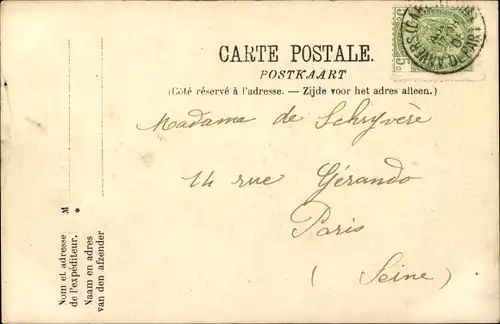 CARTE POSTALE.
POSTKAART
(Côté réservé à l'adresse. — Zijde voor het adres alleen.)
Madame de Schryvère
14 rue Gérando
Paris
(Seine)
M
*
Nom et adresse
de l'expéditeur.
Naam en adres
van den afzender
5c
ANVERS